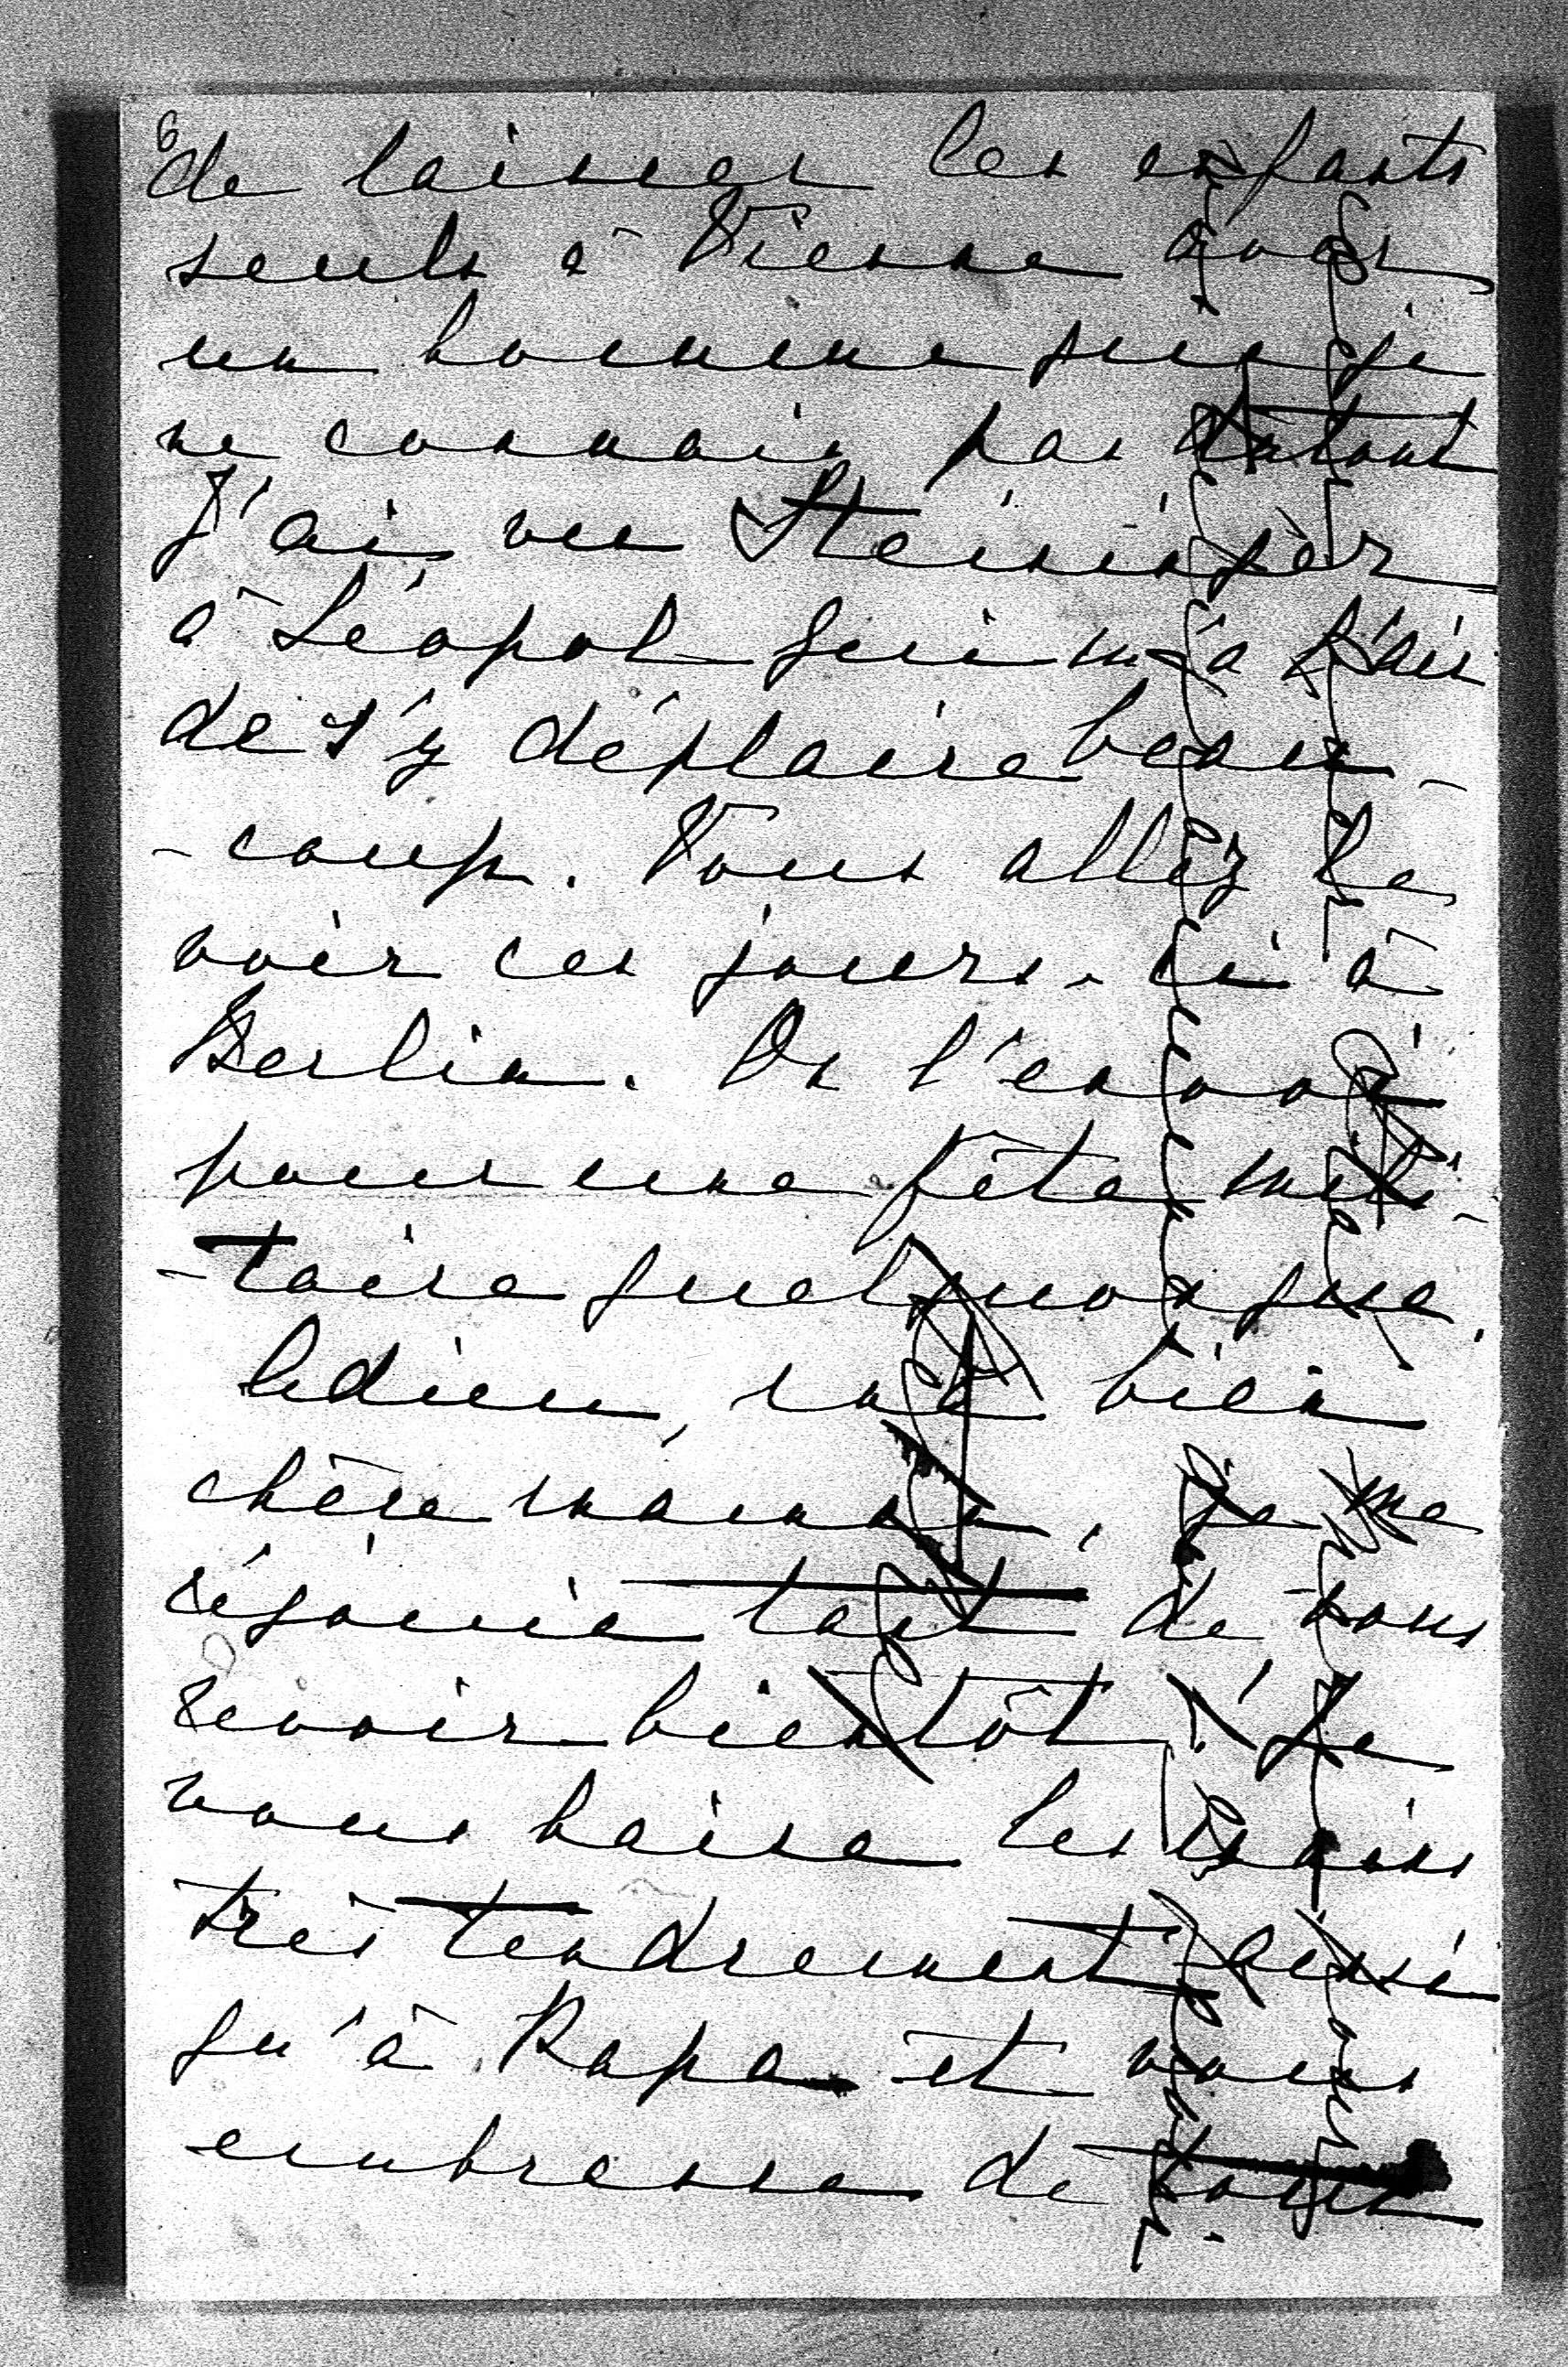 6
de laisser les enfants
seuls à Vienne avec
un homme que je
ne connais pas
J'ai vu
à Léopol qui m'a l'air
de s'y déplaire beau-
-coup. Vous allez le
voir ces jours-ci à
Berlin. On l'envoie
pour une fête mili-
-taire quelquonque.
Adieu, ma bien
chère maman, je me
réjouis tant de vous
revoir bientôt! Je
vous baise les mains
très tendrement ainsi
qu'à Papa et vous
embrasse de tout